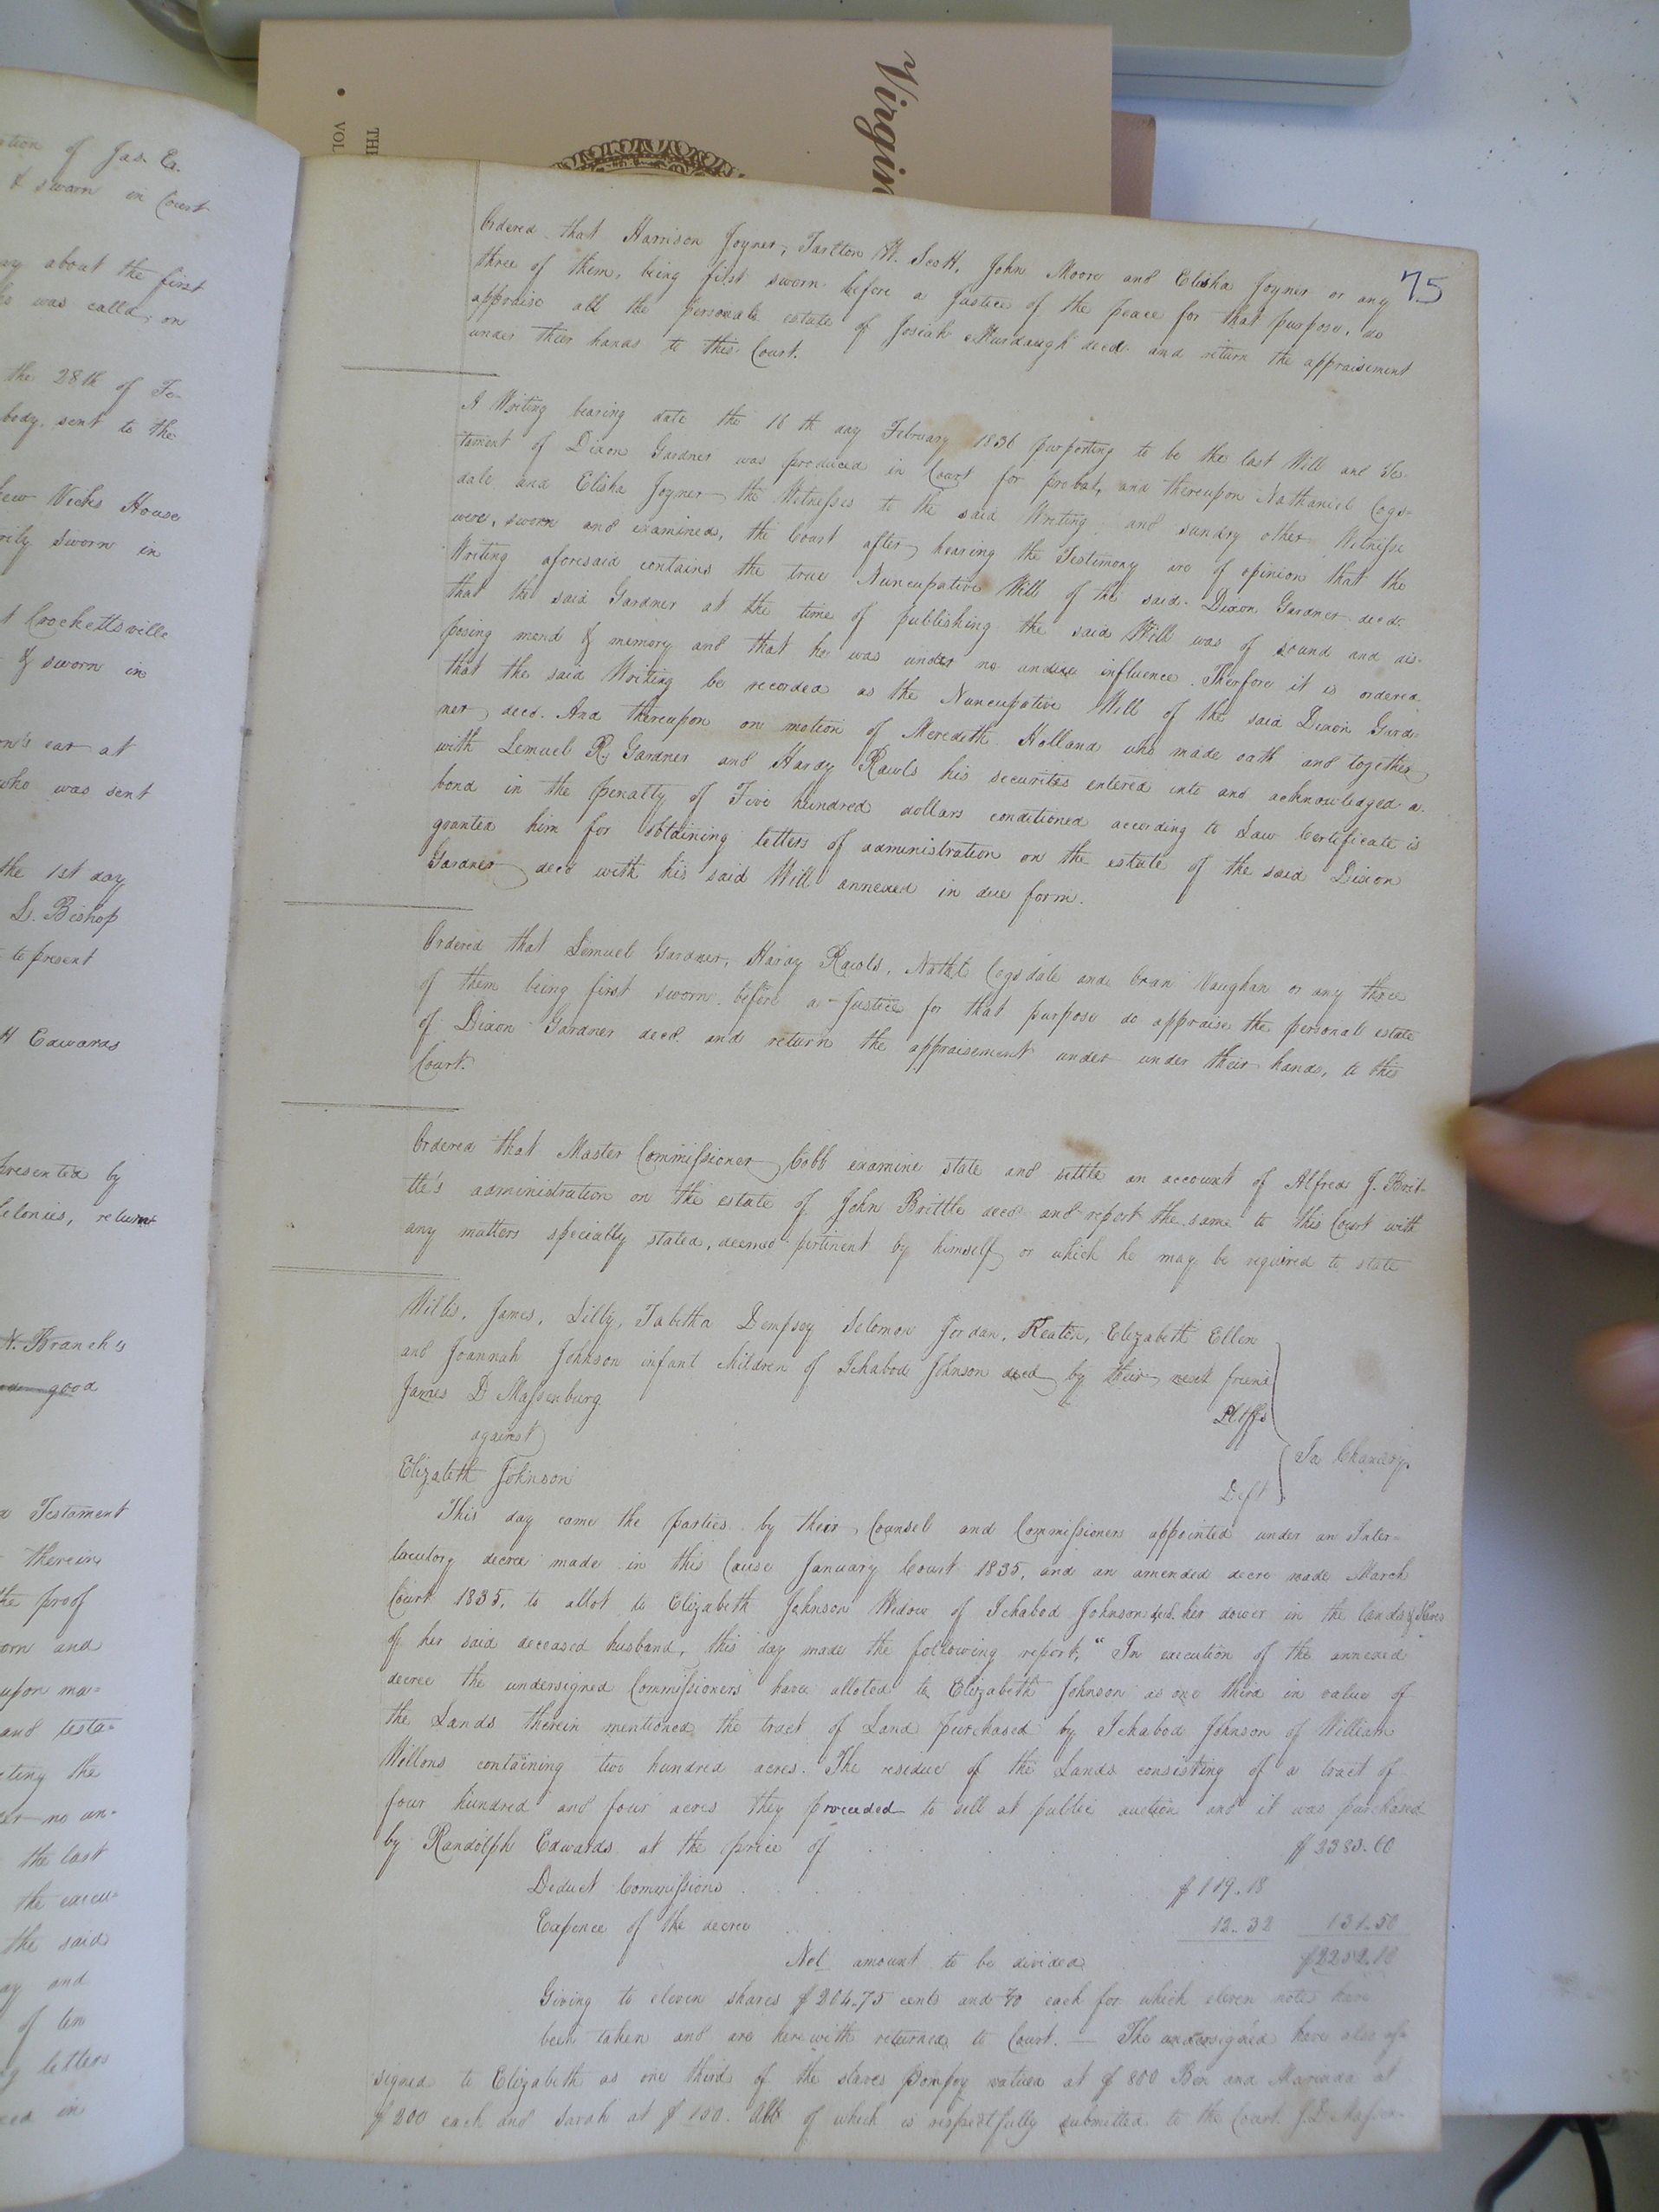 Virgin
THE
VOL
75
ation of Jas. Ex.
& sworn in Court
ay about the first
who was calld, on
the 28th of Fe-
body, sent to the
hew Vicks House
rily sworn in
t Crockettsville
& sworn in
rn's ear at
who was sent
the 1st day
L. Bishop
to present
H Edwards
presented by
felonies, return
N. Branch's
good
Testament
therein
the proof
orn and
upon mo=
and testa=
eting the
er no un=
the last
the execu=
the said
ay and
of ten
ng letters
eed in
Ordered that Harrison Joyner, Tarlton W. Scott, John Moore and Elisha Joyner or any
three of them, being first sworn before a Justice of the peace for that purpose, do
appraise all the personale estate of Josiah Murdaugh decd. and return the appraisement
under their hands to this Court.
A Writing bearing date the 16th day February 1836 purporting to be the last Will and Tes-
tament of Dixon Gardner was produced in Court for probat, and thereupon Nathaniel Cogs=
dale and Elisha Joyner the Witnesses to the said Writing and sundry other Witnesse
were, sworn and examined, the Court after hearing the Testimony are of opinion that the
Writing aforesaid contains the true Nuncupative Will of the said Dixon Gardner decd.
that the said Gardner at the time of publishing the said Will was of sound and dis-
posing mind & memory and that he was under no undue influence. Therfore it is ordered
that the said Writing be recorded as the Nuncupative Will of the said Dixon Gard-
ner decd. And thereupon on motion of Meredith Holland who made oath and together
with Lemuel R. Gardner and Hardy Rawls his securites entered into and acknowledged a
bond in the penalty of Five hundred dollars conditioned according to Law Certificate is
granted him for obtaining letters of administration on the estate of the said Dixon
Gardner decd with his said Will annexed in due form.
Ordered that Lemuel Gardner, Hardy Rawls, Nathl. Cogsdale and Oran Vaughan or any three
of them being first sworn before a Justice for that purpose do appraise the personal estate
of Dixon Gardner decd. and return the appraisement under under their hands, to this
Court.
Ordered that Master Commissioner Cobb examine state and settle an account of Alfred J. Brit-
tle's administration on the estate of John Brittle decd and report the same to this Court with
any matters specially stated, deemed pertinent by himself or which he may be required to state
Willis, James, Lilly, Tabitha Dempsey Solomon Jordan, Keaton, Elizabeth Ellen
and Joannah Johnson infant children of Ichabod Johnson decd by their next friend
James D Massenburg
Pltffs
against
In Chancery.
Elizabeth Johnson
Deft
This day came the parties by their Counsel and Commissioners appointed under an Inter-
locutory decree made in this Cause January Court 1835, and an amended decre made March
Court 1835, to allot to Elizabeth Johnson Widow of Ichabod Johnson decd. her dower in the lands & slaves
of her said deceased husband, this day made the following report, "In execution of the annexed
decree the undersigned Commissioners have alloted to Elizabeth Johnson as one third in value of
the Lands therein mentioned the tract of Land purchased by Ichabod Johnson of William
Willons containing two hundred acres. The residue of the Lands consisting of a tract of
four hundred and four acres they proceeded to sell at public auction and it was purchased
by Randolph Edwards at the price of $2383.60
Deduct Commissions $119.18
Expence of the decree 12.32 131.50
Net amount to be divided $2252.10
Giving to eleven shares $204.75 cents and each for which eleven notes have
been taken and are herewith returned to Court. — The undersigned have also as-
signed to Elizabeth as one third of the slaves Pompey valued at $800 Ben and Marinda at
$200 each and Sarah at $150. All of which is respectfully submitted to the Court J. D. Massen-